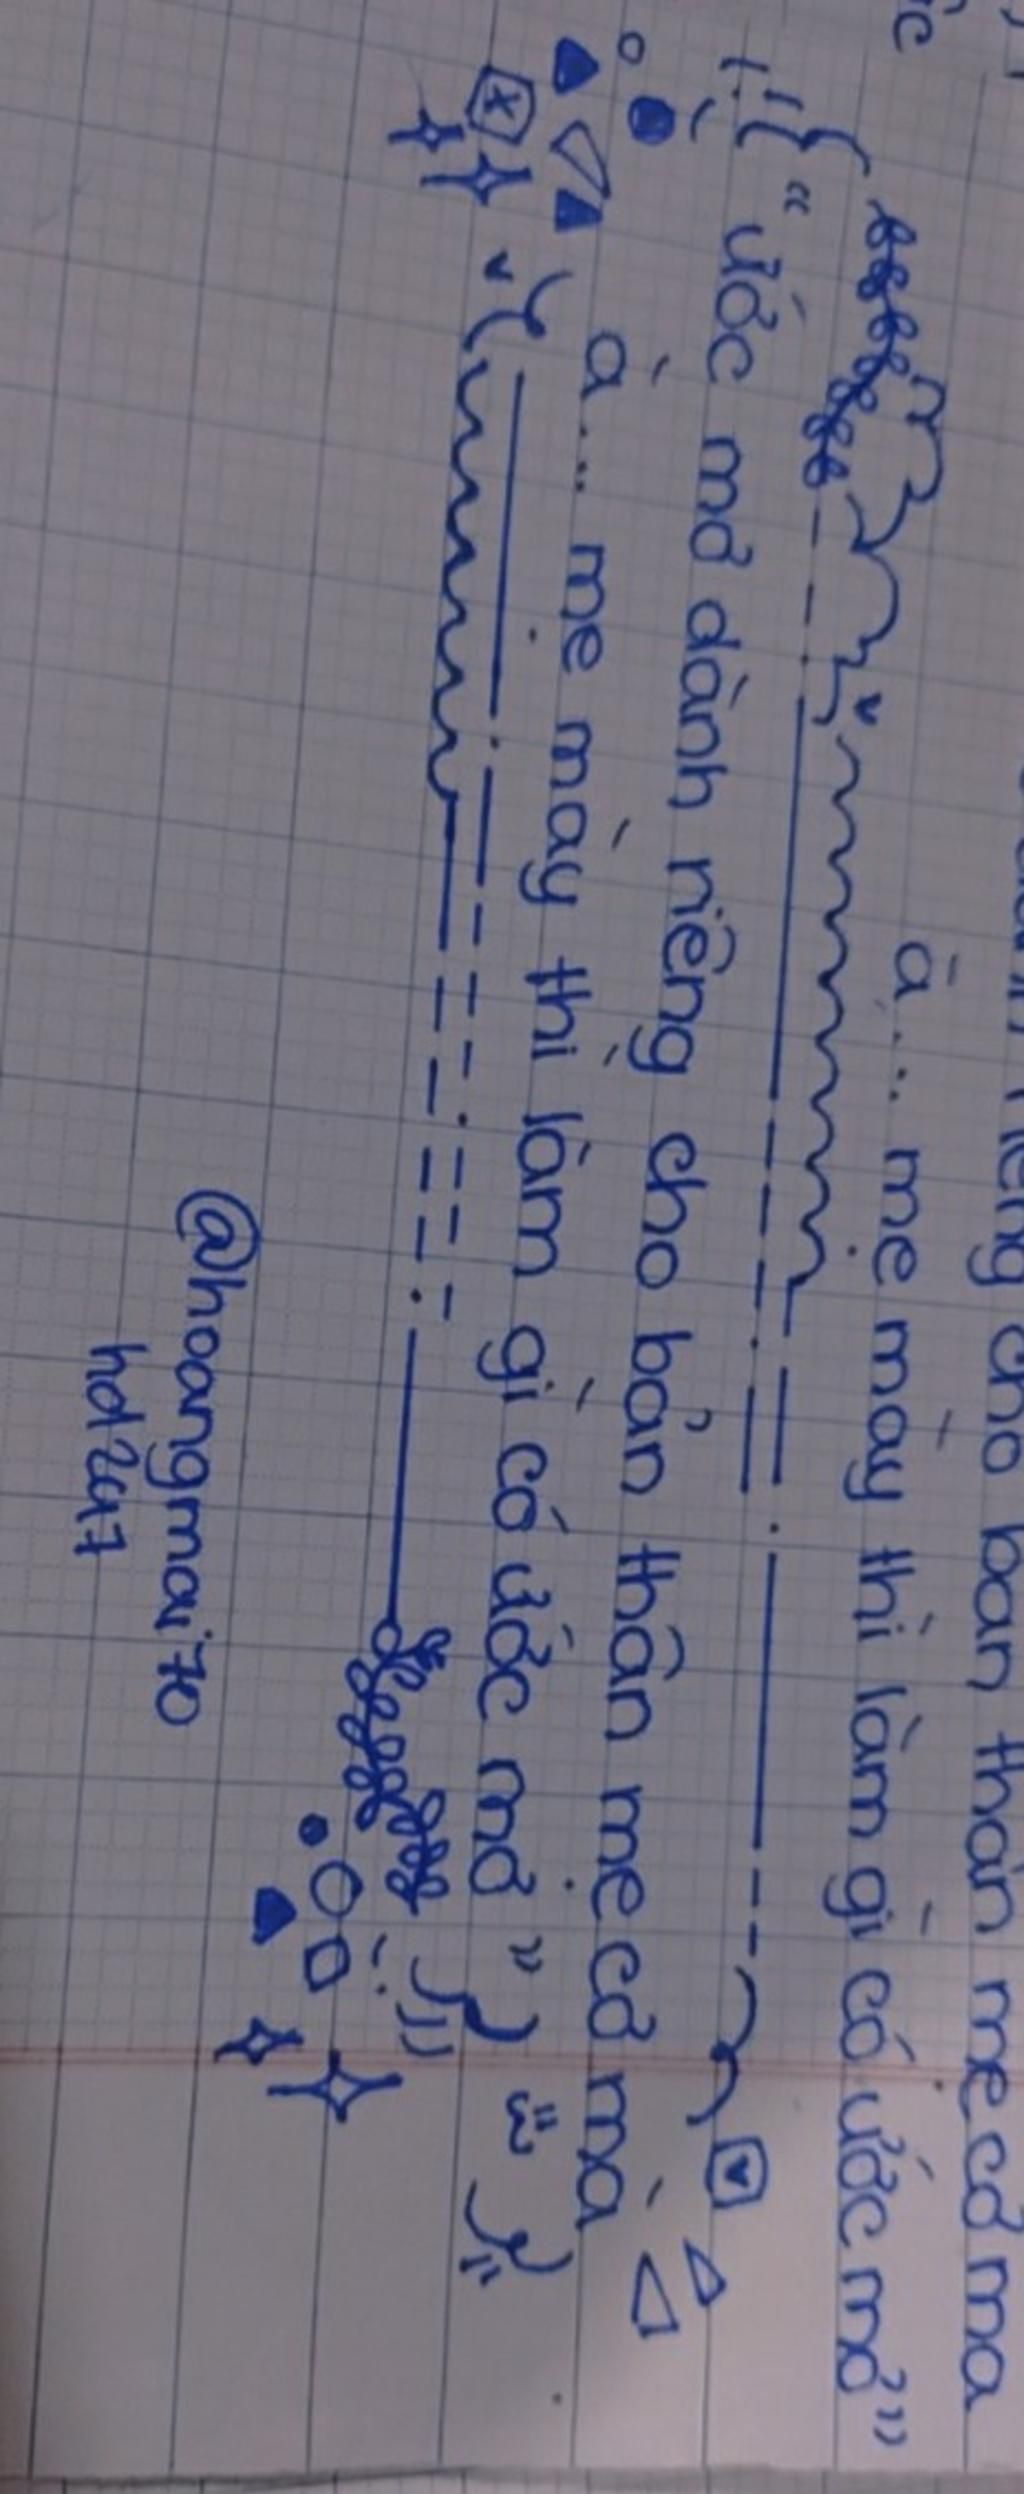 ước
riêng cho bản thân mẹ cơ mà
à... mẹ mày thì làm gì có ước mơ"
"ước mơ dành riêng cho bản thân mẹ cơ mà
à... mẹ mày thì làm gì có ước mơ"
@hoangmai70
hd2417